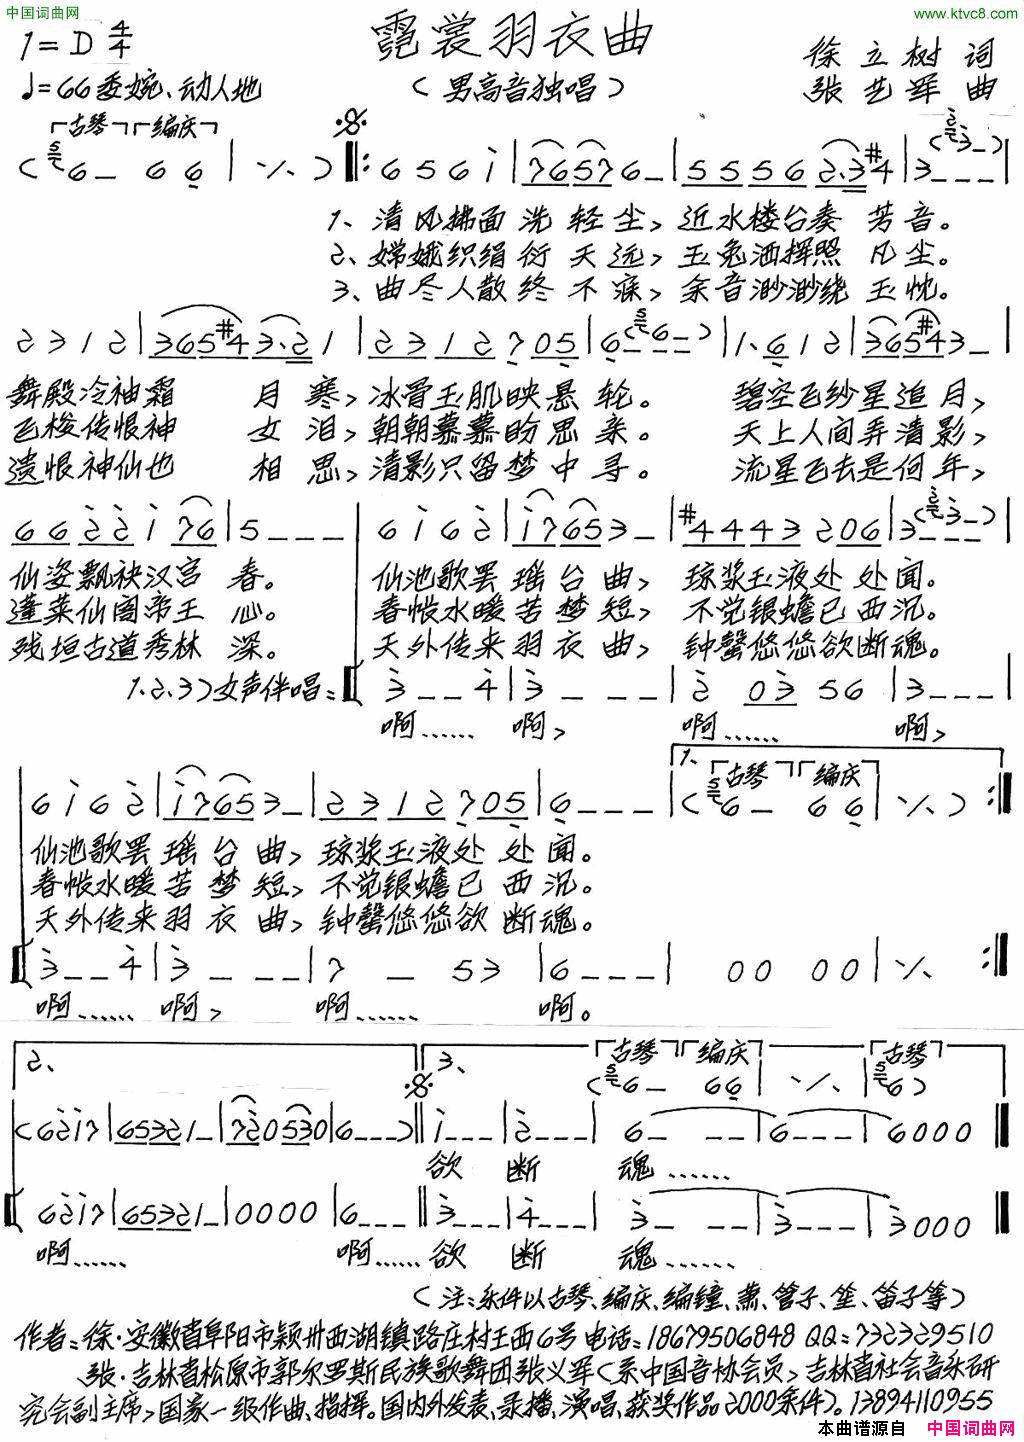 中国词曲网
www.ktvc8.com
霓裳羽衣曲
1=D 4/4
（男高音独唱）
徐立树 词
张艺军 曲
♩=66 委婉、动人地
古琴 编庆
(6 – 6 6 | ·/. ) ‖: 6 5 6 i | 7 6 5 7 6 – | 5 5 5 6 2·3 #4 | 3 – – – |
1、清风拂面洗轻尘，近水楼台奏芳音。
2、嫦娥织绢衍天远，玉兔洒挥照凡尘。
3、曲尽人散终不寐，余音渺渺绕玉枕。
2 3 1 2 | 3 6 5 #4 3·2 1 | 2 3 1 2 7 0 5 | 6 – – – | 1·6 1 2 | 3 6 5 #4 3 – |
舞殿冷袖霜月寒，冰骨玉肌映悬轮。碧空飞纱星追月，
飞梭传恨神女泪，朝朝慕慕盼思亲。天上人间弄清影，
遗恨神仙也相思，清影只留梦中寻。流星飞去是何年，
6 6 2 2 i 7 6 | 5 – – – | 6 i 6 2 | i 7 6 5 3 – | #4 4 4 3 2 0 6 | 3 – – – |
仙姿飘袂汉宫春。仙池歌罢瑶台曲，琼浆玉液处处闻。
蓬莱仙阁帝王心。春帐水暖苦梦短，不觉银蟾已西沉。
残垣古道秀林深。天外传来羽衣曲，钟罄悠悠欲断魂。
1.2.3）女声伴唱：[ 3 – – 4 | 3 – – – | 2 0 3 5 6 | 3 – – – |
啊…… 啊， 啊…… 啊，
1. 古琴 编庆
6 i 6 2 | i 7 6 5 3 – | 2 3 1 2 7 0 5 | 6 – – – | (6 – 6 6 | ·/. ) :‖
仙池歌罢瑶台曲，琼浆玉液处处闻。
春帐水暖苦梦短，不觉银蟾已西沉。
天外传来羽衣曲，钟罄悠悠欲断魂。
3 – – 4 | 3 – – – | 7 – 5 3 | 6 – – – | 0 0 0 0 | ·/. :‖
啊…… 啊， 啊…… 啊。
2、 3、 古琴 编庆 古琴
(6 2 i 7 | 6 5 3 2 1 – | 7 2 0 5 3 0 | 6 – – –) ‖ i – – – | 2 – – – | 6 – – – | 6 – – – | 6 0 0 0 ‖
欲 断 魂……
6 2 i 7 | 6 5 3 2 1 – | 0 0 0 0 | 6 – – – ‖ 3 – – – | 4 – – – | 3 – – – | 3 – – – | 3 0 0 0 ‖
啊…… 啊…… 欲 断 魂……
（注：乐件以古琴、编庆、编钟、萧、管子、笙、笛子等）
作者：徐·安徽省阜阳市颖州西湖镇路庄村王西6号 电话：18679506848 QQ：732329510
张·吉林省松原市郭尔罗斯民族歌舞团张义军（系中国音协会员，吉林省社会音乐研
究会副主席，国家一级作曲、指挥。国内外发表、录播、演唱、获奖作品2000余件）。13894110955
本曲谱源自 中国词曲网